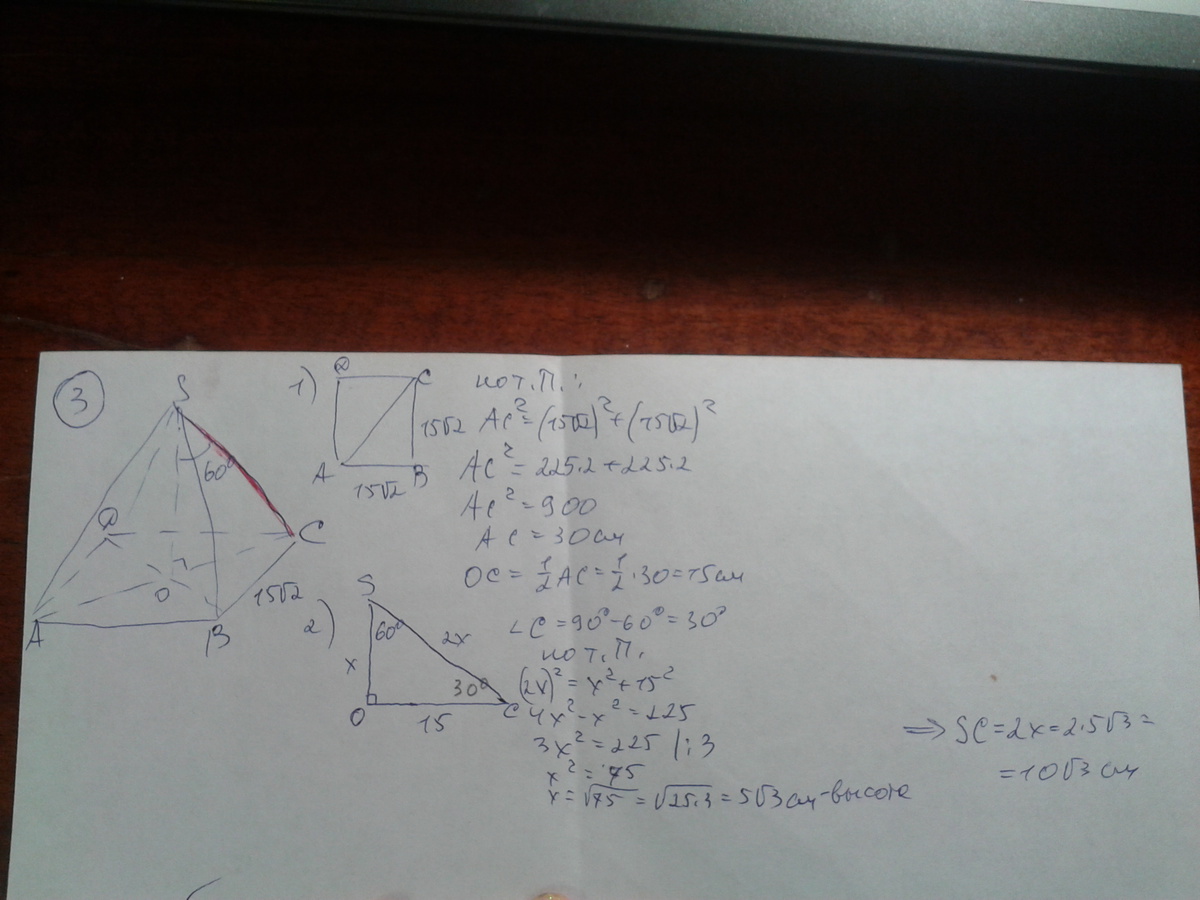 3
S
60°
D
C
O
15√2
A
B
1)
D
C
15√2
A
B
15√2
по т. П.:
AC²=(15√2)²+(15√2)²
AC²=225·2+225·2
AC²=900
AC=30см
OC=½AC=½·30=15см
2)
S
60°
2x
x
30°
O
15
C
∠C=90°-60°=30°
по т. П.
(2x)²=x²+15²
4x²-x²=225
3x²=225 |:3
x²=75
x=√75=√25·3=5√3см-высота
⇒ SC=2x=2·5√3=
=10√3 см